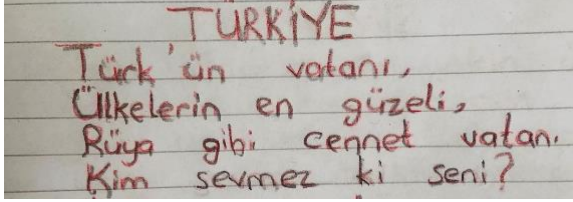 TÜRKİYE
Türk'ün vatanı,
Ülkelerin en güzeli,
Rüya gibi cennet vatan.
Kim sevmez ki seni?